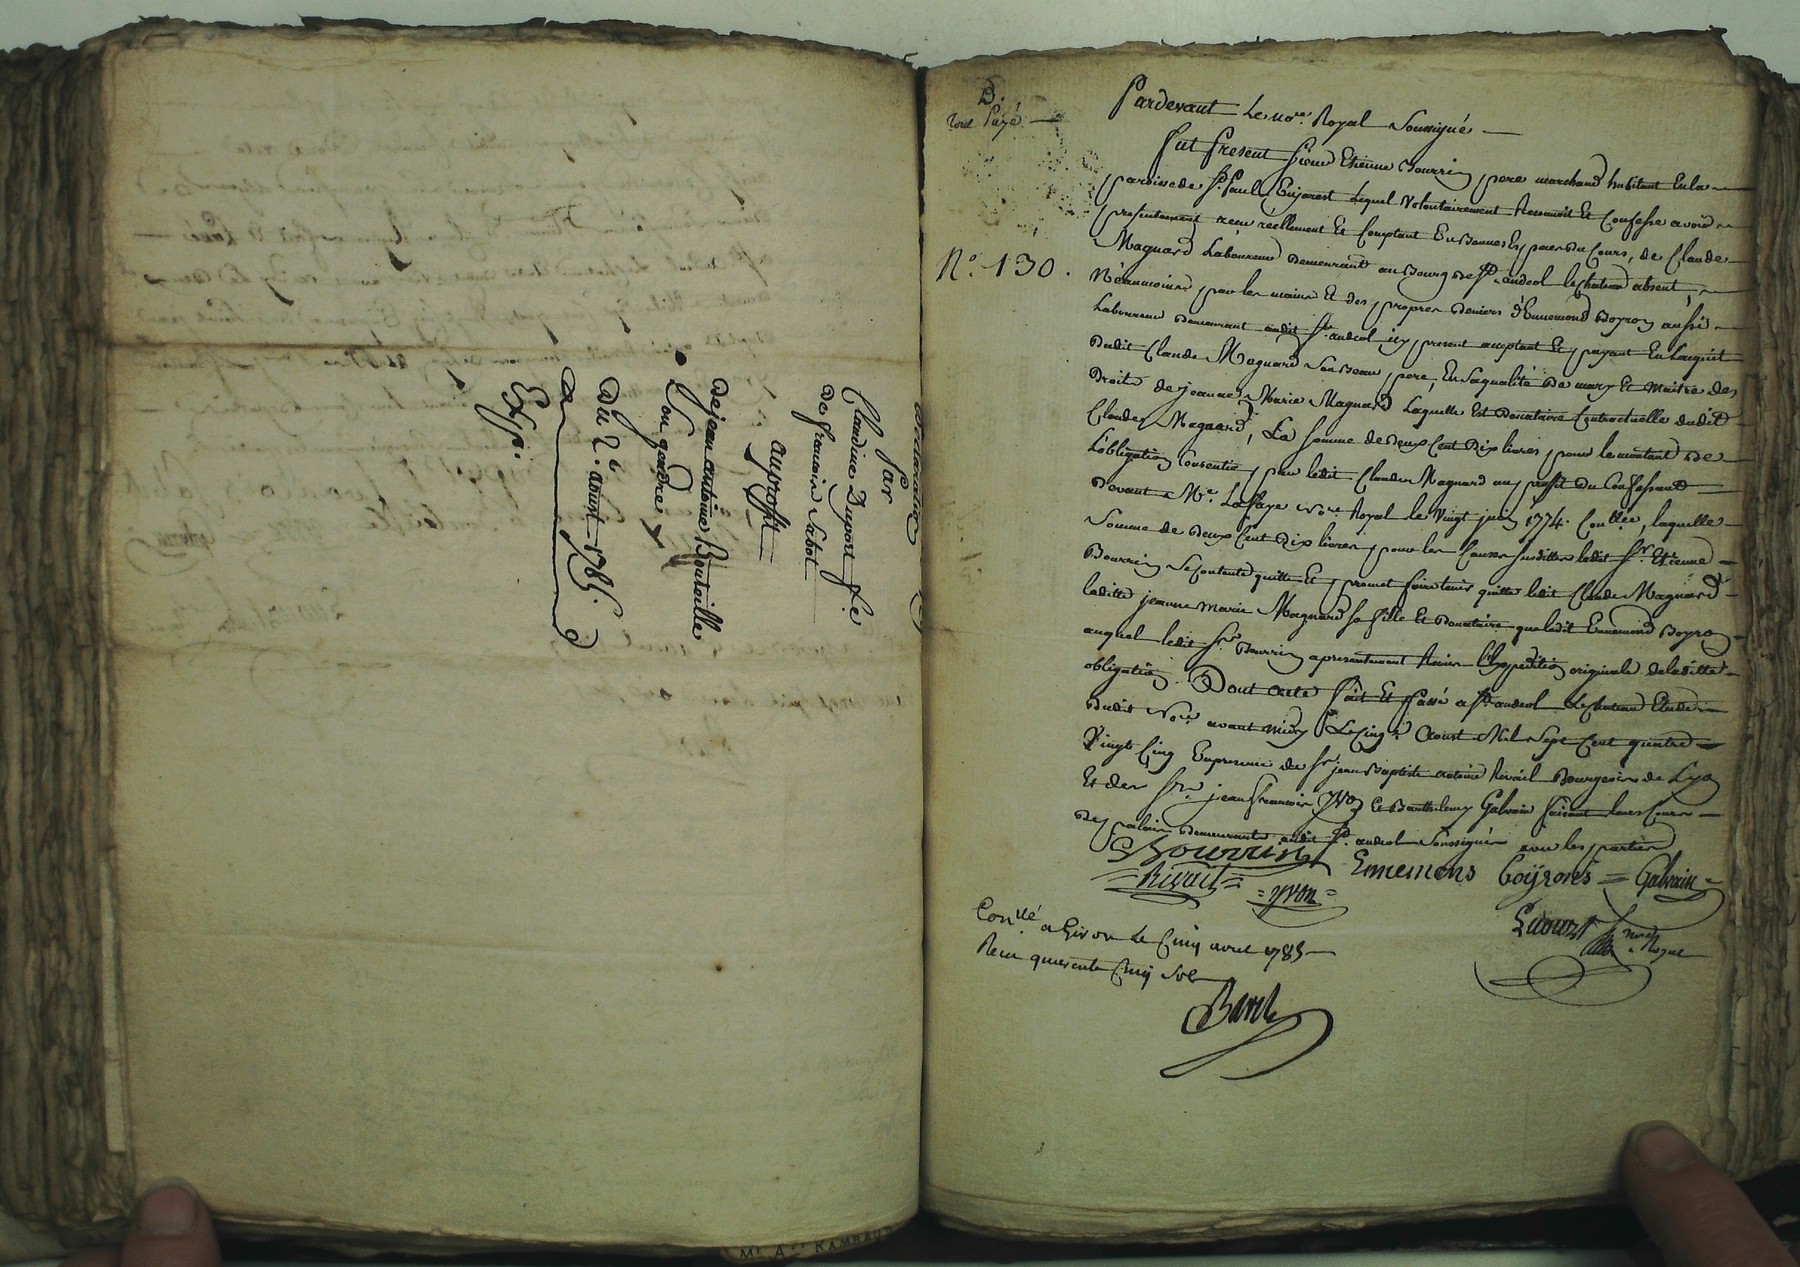 Declaration
Par
Claudine Dupont fe
De francois Sabot
auproffit
De jean antoine Bouteille
son gendre
Du 2e. aoust 1785.
Exp.
D.
tout Payé
N.o 130.
Pardevant Le no.re Royal Soussigné
fut Present sieur Etienne Bourrin pere marchand habitant En la
paroisse de St. Paul En jarest Lequel volontairement Reconnoit Et Confesse avoir
presentement receu réellement Et Comptant En Bonnes Especes Du Cours, de Claude
Magnard Laboureur Demeurant au Bourg de St. andeol le chateau absent
Néanmoins par les mains Et des propres Deniers d'Ennemond Boyron aussi
Laboureur Demeurant audit St. andeol icy present acceptant Et payant En Lacquit
Dudit Claude Magnard Son Beau pere, En Saqualité De mary Et maitre des
Droits de jeanne Marie Magnard Laquelle Est Donataire Contractuelle dudit
Claude Magnard, La Somme de Deux Cent Dix livres pour le montant De
L'obligation Consentie par ledit Claude Magnard au proffit Du Confessant
Devant Me. Laffaye No.re Royal le Vingt juin 1774. Con.llée, laquelle
Somme de Deux Cent Dix livres pour les Causes Susdittes ledit Sr. Etienne
Bourrin Se Contente quitte Et promet faire tenir quitte ledit Claude Magnard
laditte jeanne Marie Magnard Sa fille Et Donataire que ledit Ennemond Boyron
auquel ledit Sr. Bourrin a presentement Remis l'Expedition originale de laditte
obligation. Dont acte fait Et Passé a St. andeol Le chateau Etude
Dudit No.re avant midy Le Cinq Aoust Mil Sept Cent quatre
Vingt Cinq En presence de Sr. jean Baptiste antoine Rivoit Bourgeois de Lyon
Et des Srs. jean francois Yvon Et Barthelemy Galvain faisant leurs Cours
De palais Demeurants audit St. andeol Soussignés avec les parties
Bourrin Ennemons Boÿrons = Galvain =
= Rivoit = = yvon =
Con.llé a Givor Le Cinq avril 1785
Receu quarente Cinq Sols
no.re Royal